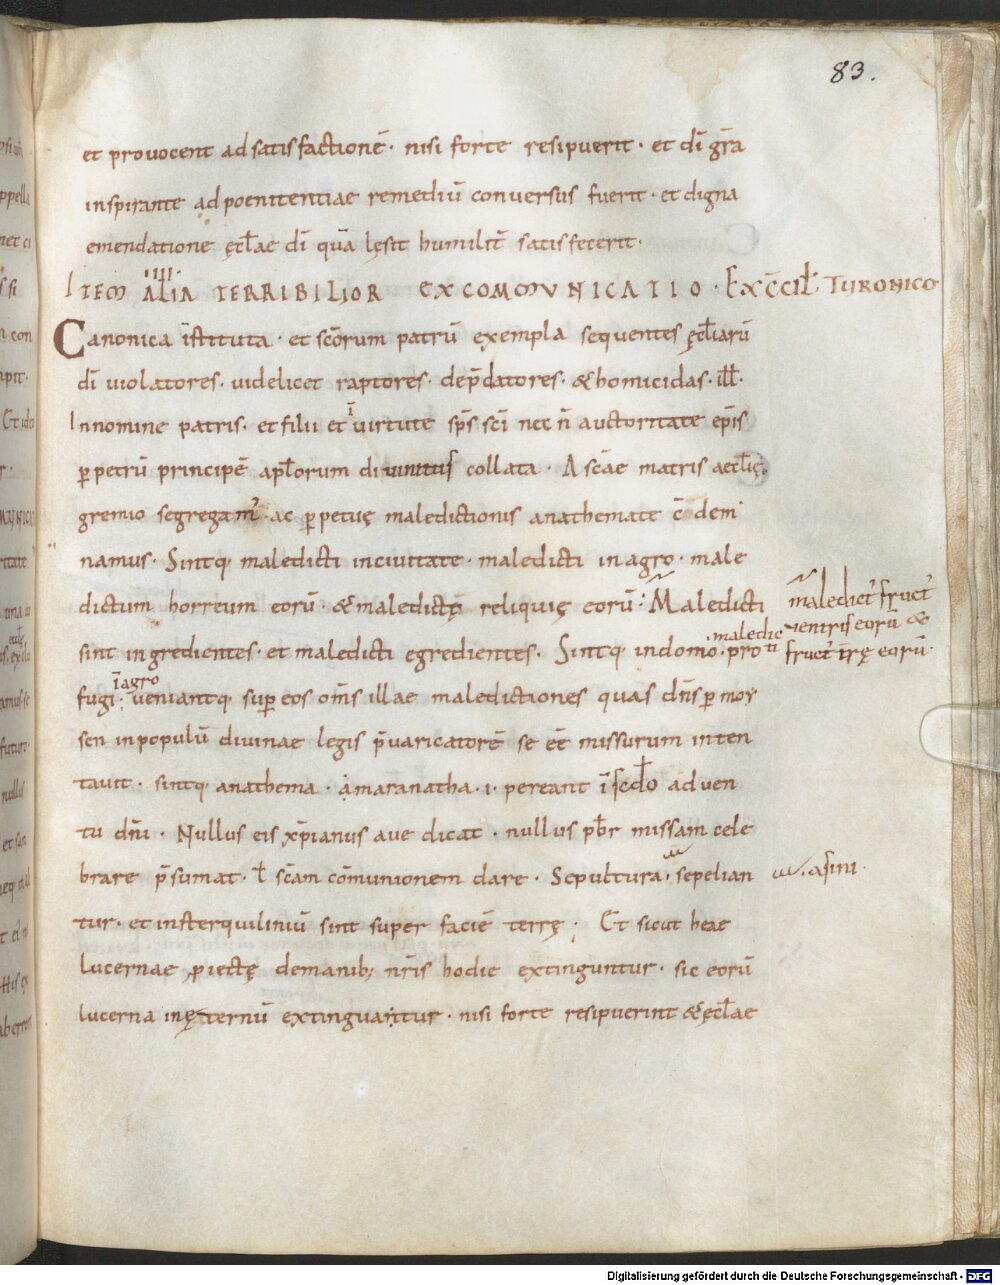 83.
et prouocent ad satisfactionē · nisi forte resipuerit · et dī gr̄a
inspirante ad poenitentiae remediū conuersus fuerit · et digna
emendatione ęcl̄ae dī quā lęsit humilit̄ satisfecerit ·
ITEM ALIA TERRIBILIOR EXCOMMUNICATIO · Ex c̄c̄il̄ TURONICO
Canonica īstituta · et sc̄orum patrū exempla sequentes ęcl̄iarū
dī uiolatores · uidelicet raptores · dep̄datores · & homicidas · ill̄ ·
Innomine patris · et filii et ī uirtute sp̄s sc̄i nec n̄ auctoritate ep̄is
ꝑ petrū principē apl̄orum diuinitus collata · A sc̄ae matris aecl̄ię
gremio segregamᷣ · ac ꝑpetuę maledictionis anathemate c̄ dem
namus · Sintq· maledicti inciuitate · maledicti in agro · male
dictum horreum eorū · & maledictę reliquię eorū · Maledicti
maledictᷣ fructᷣ
uentris eorū &
fructᷣ t̄rę eorū ·
sint ingredientes · et maledicti egredientes · Sintq· indomo · maledicti · pro
fugi ī agro · ueniantq· suꝑ eos om̄s illae maledictiones quas dn̄s ꝑ moy
sen inpopulū diuinae legis p̄uaricatorē se eē missurum inten
tauit · sintq· anathema · amaranatha · i · pereant ī sc̄do aduen
tu dn̄i · Nullus eis xp̄ianus aue dicat · nullus pb̄r missam cele
brare p̄sumat · l̄ sc̄am cōmunionem dare · Sepultura · sepelian
· asini ·
tur · et insterquiliniū sint super faciē terrę ; Et sicut heae
lucernae ꝓiectę demanib; nr̄is hodie extinguntur · sic eorū
lucerna inęternū extinguantur · nisi forte resipuerint & ęcl̄ae
Digitalisierung gefördert durch die Deutsche Forschungsgemeinschaft - DFG